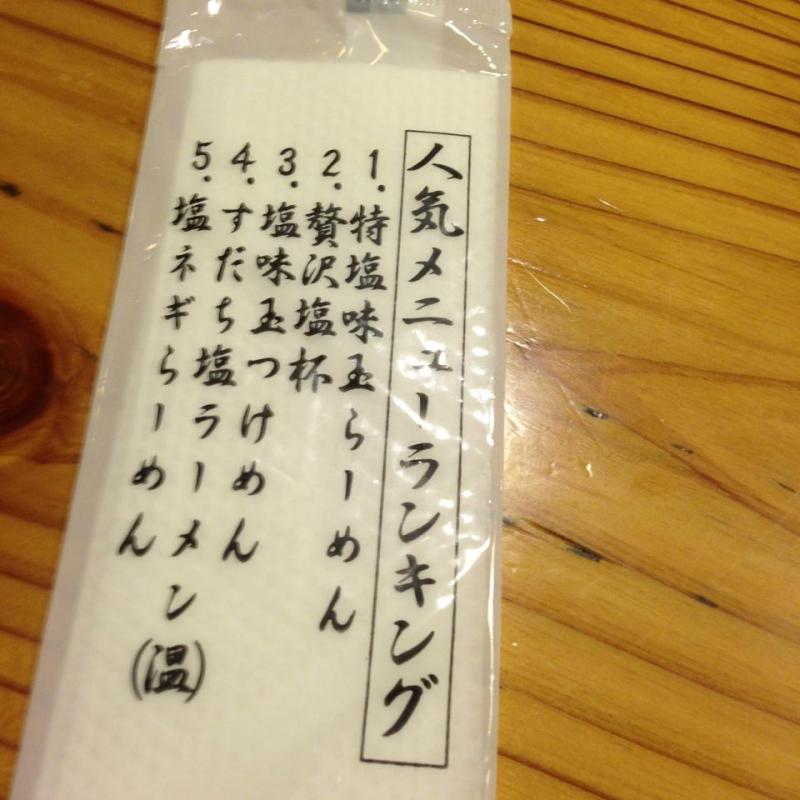 人気メニューランキング
1.特塩味玉らーめん
2.贅沢塩杯
3.塩味玉つけめん
4.すだち塩ラーメン(温)
5.塩ネギらーめん